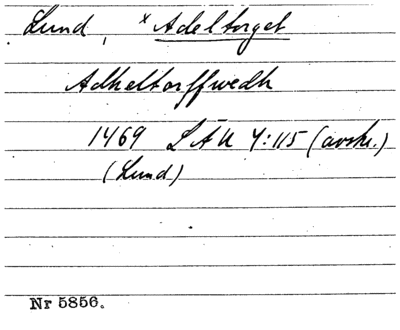 Lund, × Adeltorget
Adheltorffwedh
1469 LÄU 4:115 (avskr.)
(Lund)
Nr 5856.